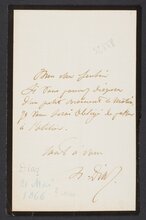 Mon cher
Si vous pouvez disposer
d'un petit moment ce matin
je vous serai obligé de passer
à l'atelier
Tout à vous
N. Diaz
Diaz
21 Mai
1866